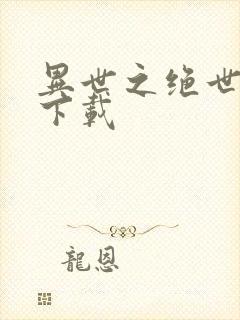 異世之绝世
下載
龍恩